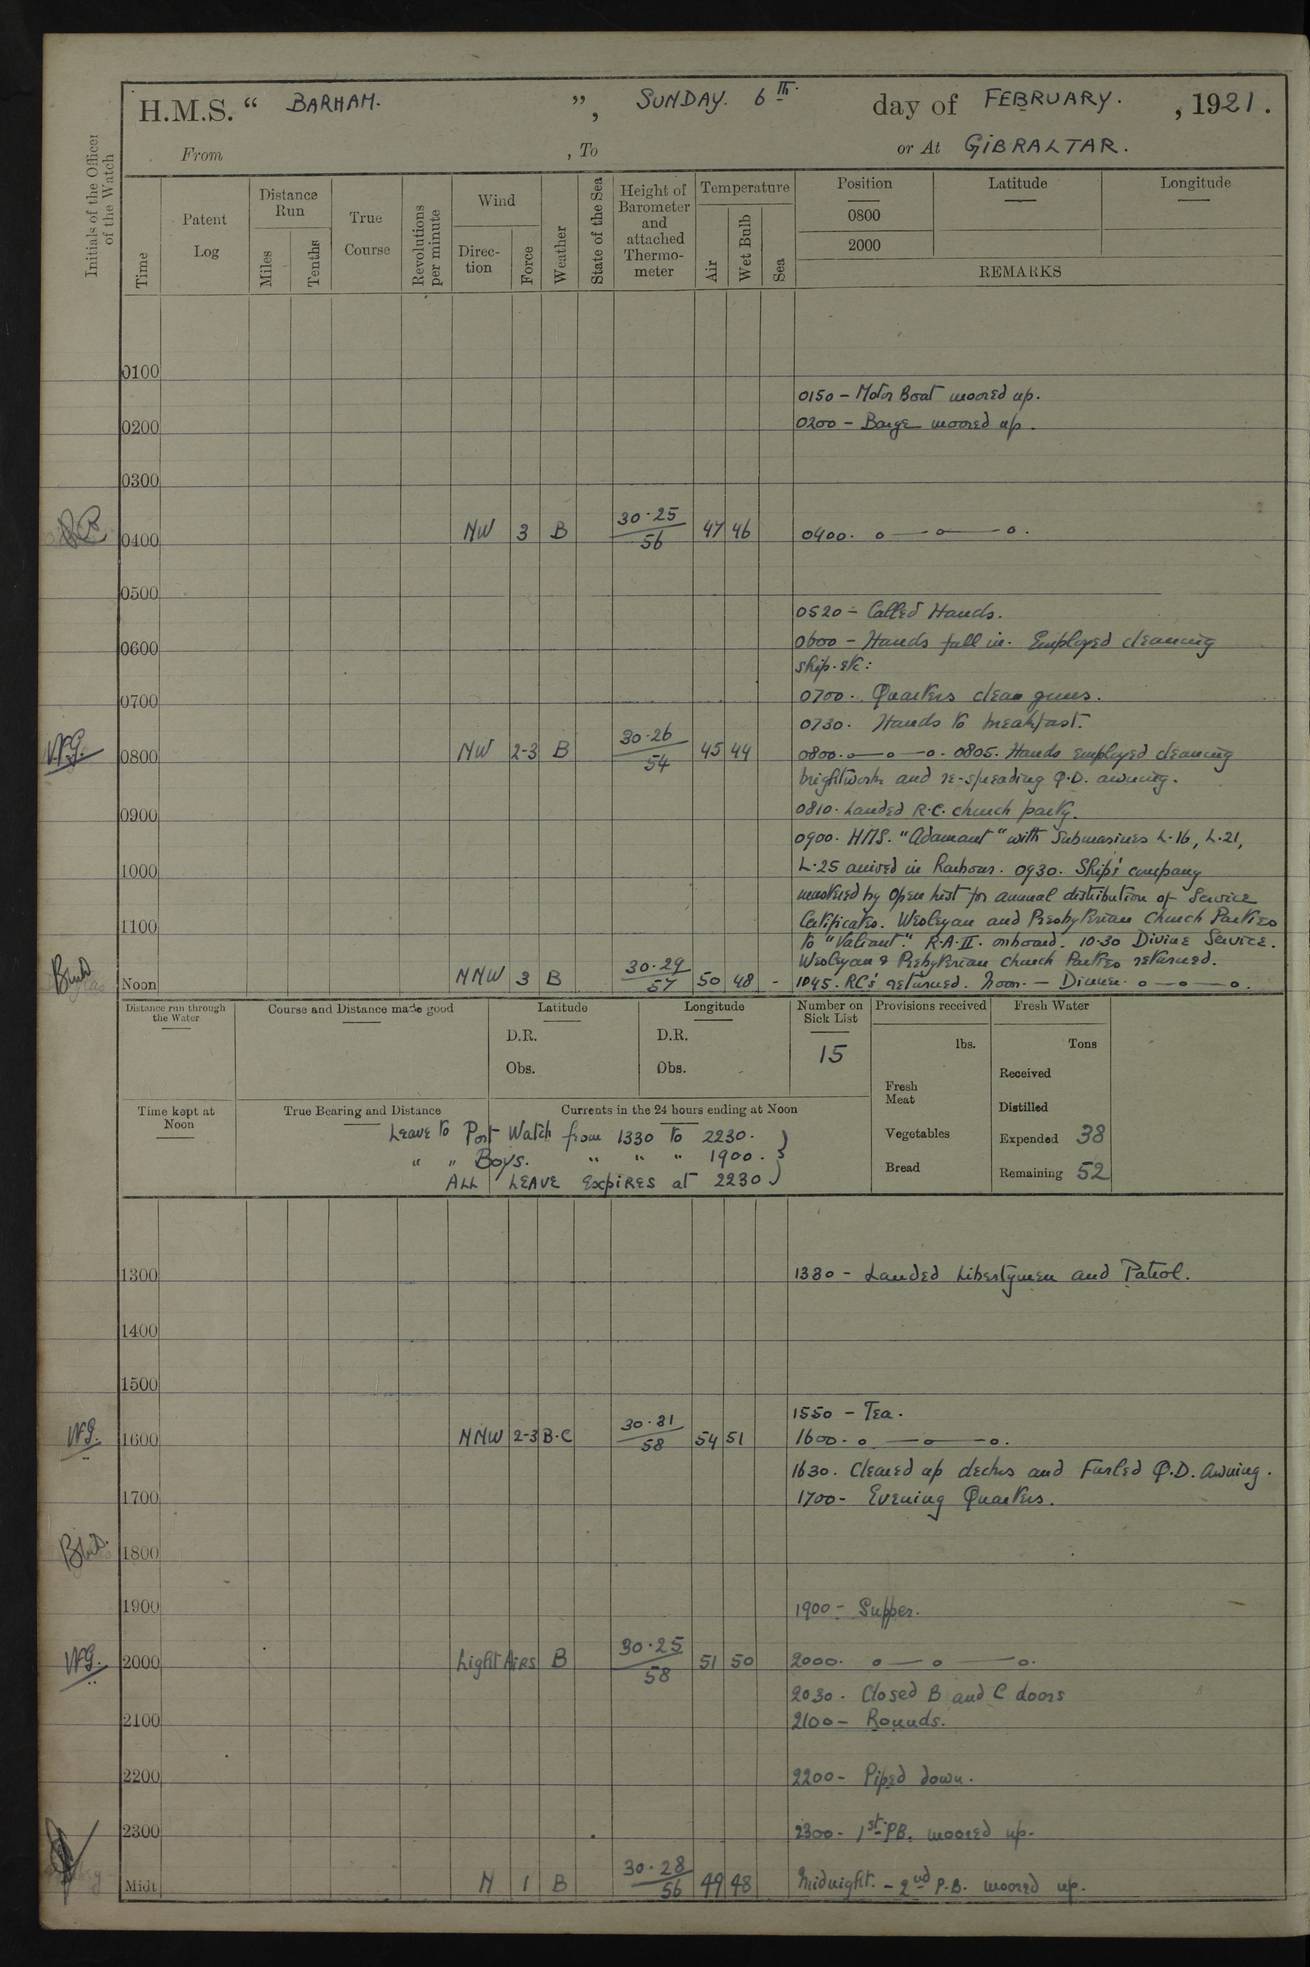 H.M.S. “ BARHAM. ”, SUNDAY. 6th. day of FEBRUARY. , 1921.
From , To or At GIBRALTAR.
Initials of the Officer of the Watch
Time
Patent Log
Distance Run
Miles
Tenths
True Course
Revolutions per minute
Wind
Direc- tion
Force
Weather
State of the Sea
Height of Barometer and attached Thermo- meter
Temperature
Air
Wet Bulb
Sea
Position
Latitude
Longitude
0800
2000
REMARKS
0100
0150 - Motor Boat moored up.
0200 0200 - Barge moored up.
0300
0400 NW 3 B 30.25 56 47 46 0400. o — o — o.
0500
0520 - Called Hands.
0600 0600 - Hands fall in. Employed cleaning
ship. etc:
0700 0700. Quarters clean guns.
0730. Hands to breakfast.
W.G. 0800 NW 2-3 B 30.26 54 45 44 0800. o — o — o. 0805. Hands employed cleaning
brightwork and re-spreading Q.D. awning.
0900 0810. Landed R.C. church party.
0900. HMS. “Adamant” with Submarines L.16, L.21,
1000 L.25 arrived in harbour. 0930. Ship's company
mustered by Open list for annual distribution of Service
1100 Certificates. Wesleyan and Presbyterian Church Parties
to “Valiant.” R.A.II. onboard. 10.30 Divine Service.
Wesleyan & Presbyterian Church Parties returned.
Noon NNW 3 B 30.29 57 50 48 - 1045. RC's returned. Noon. - Dinner. o — o — o.
Distance run through the Water
Course and Distance made good
Latitude
D.R.
Obs.
Longitude
D.R.
Obs.
Number on Sick List
15
Provisions received
lbs.
Fresh Meat
Vegetables
Bread
Fresh Water
Tons
Received
Distilled
Expended 38
Remaining 52
Time kept at Noon
True Bearing and Distance
Currents in the 24 hours ending at Noon
Leave to Port Watch from 1330 to 2230.
" " Boys. " " " 1900.
ALL LEAVE EXPIRES at 2230
1300 1330 - Landed Libertymen and Patrol.
1400
1500
1550 - Tea.
W.G. 1600 NNW 2-3 B.C 30.31 58 54 51 1600. o — o — o.
1630. Cleared up decks and Furled Q.D. Awning.
1700 1700 - Evening Quarters.
1800
1900 1900 - Supper.
W.G. 2000 Light Airs B 30.25 58 51 50 2000. o — o — o.
2030. Closed B and C doors
2100 2100 - Rounds.
2200 2200 - Piped down.
2300 2300 - 1st PB. moored up.
Midt N 1 B 30.28 56 49 48 Midnight. - 2nd P.B. moored up.